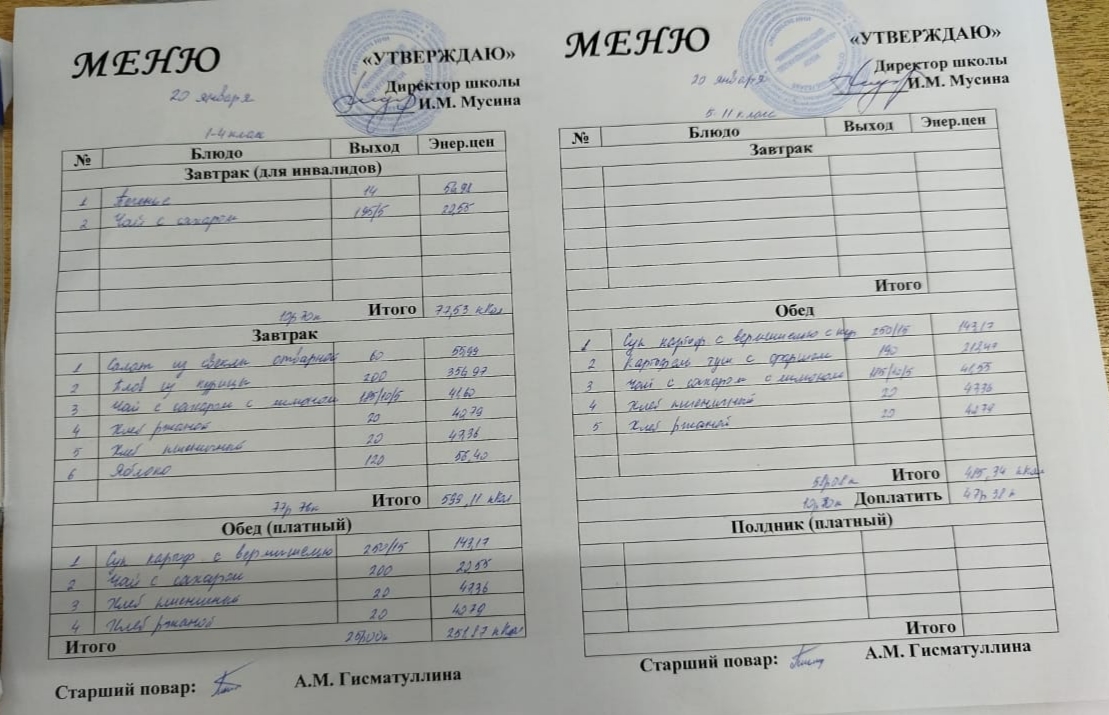 МЕНЮ
«УТВЕРЖДАЮ»
Директор школы
И.М. Мусина
20 января
1-4 класс
№ Блюдо Выход Энер.цен
Завтрак (для инвалидов)
1 Печенье 14 54,98
2 Чай с сахаром 195/5 22,55
10р70к Итого 77,53 кКал
Завтрак
1 Салат из свеклы отварной 60 55,99
2 Плов из курицы 200 356,97
3 Чай с сахаром с лимоном 195/10/5 41,60
4 Хлеб ржаной 20 40,79
5 Хлеб пшеничной 20 47,36
6 Яблоко 120 56,40
77р 76к Итого 599,11 кКал
Обед (платный)
1 Суп картоф с вермишелью 250/15 143,17
2 Чай с сахаром 200 22,55
3 Хлеб пшеничной 20 47,36
4 Хлеб ржаной 20 40,79
Итого
Старший повар:
А.М. Гисматуллина
МЕНЮ
«УТВЕРЖДАЮ»
Директор школы
И.М. Мусина
20 января
5-11 класс
№ Блюдо Выход Энер.цен
Завтрак
Итого
Обед
1 Суп картоф с вермишелью с 250/15 143,17
2 Картофель туш с фаршем 190 212,40
3 Чай с сахаром с лимоном 195/10/5 41,55
4 Хлеб пшеничной 20 47,36
5 Хлеб ржаной 20 40,79
58р08к Итого 485,34 кКал
Доплатить 47р 38к
Полдник (платный)
Итого
Старший повар:
А.М. Гисматуллина